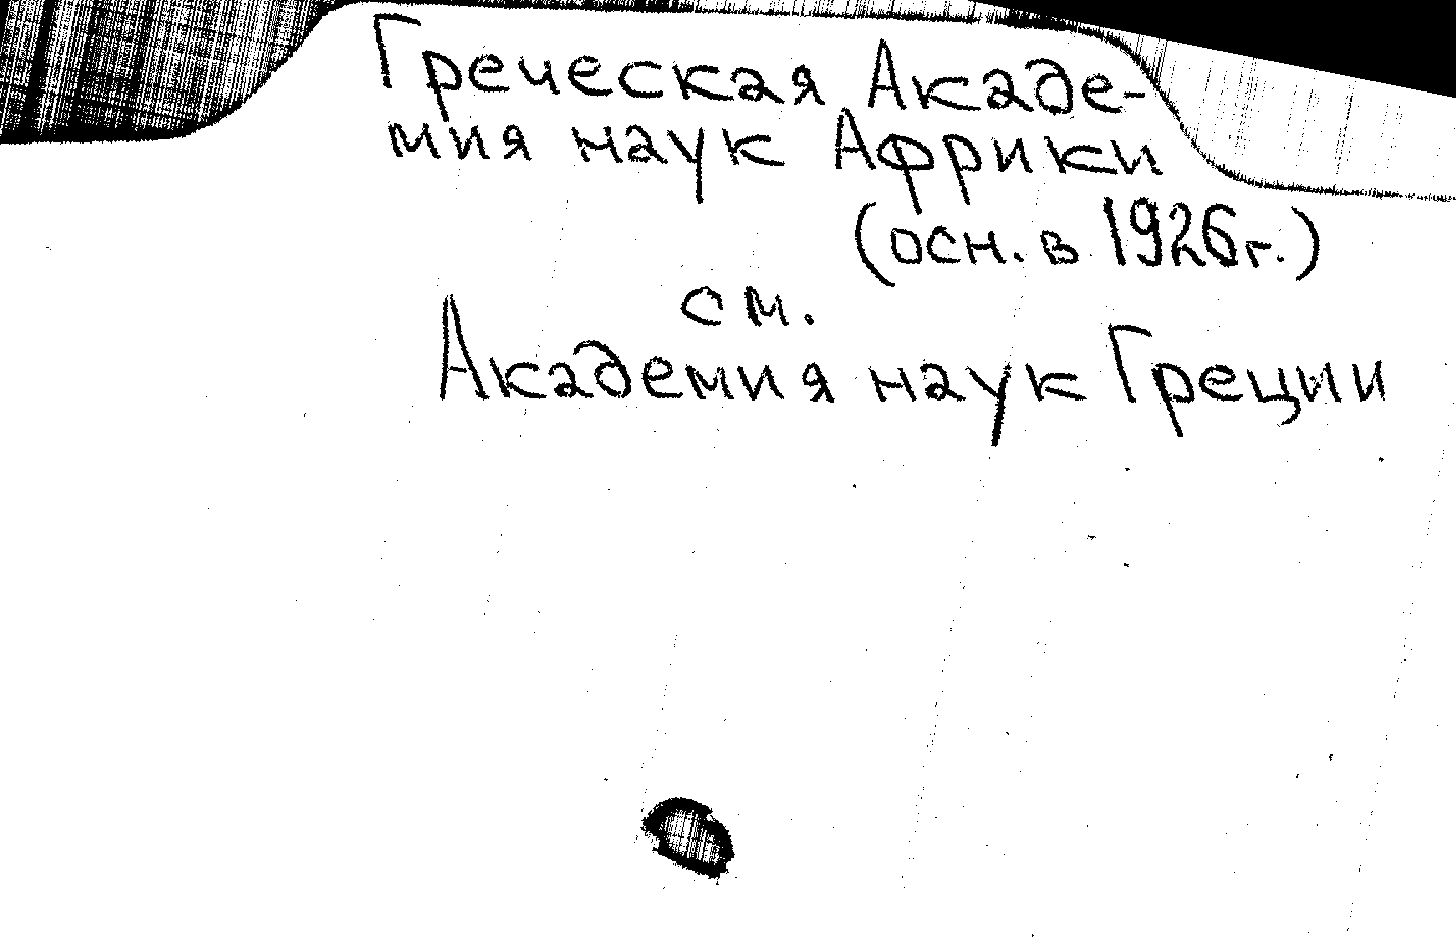 Греческая Акаде-
мия наук Африки
(осн. в 1926г.)
см.
Академия наук Греции